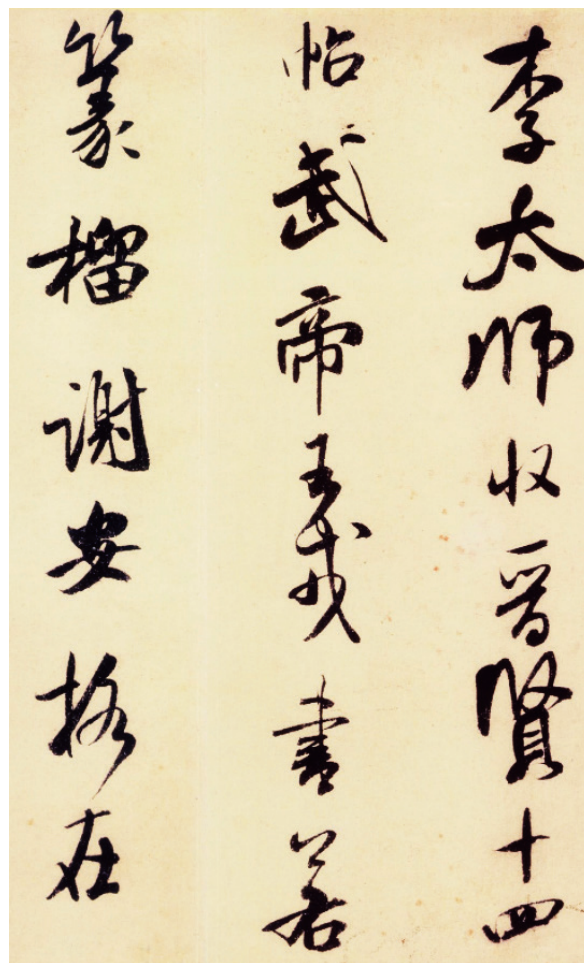 李太師收晉賢十四
帖武帝王戎書若
篆籀謝安格在